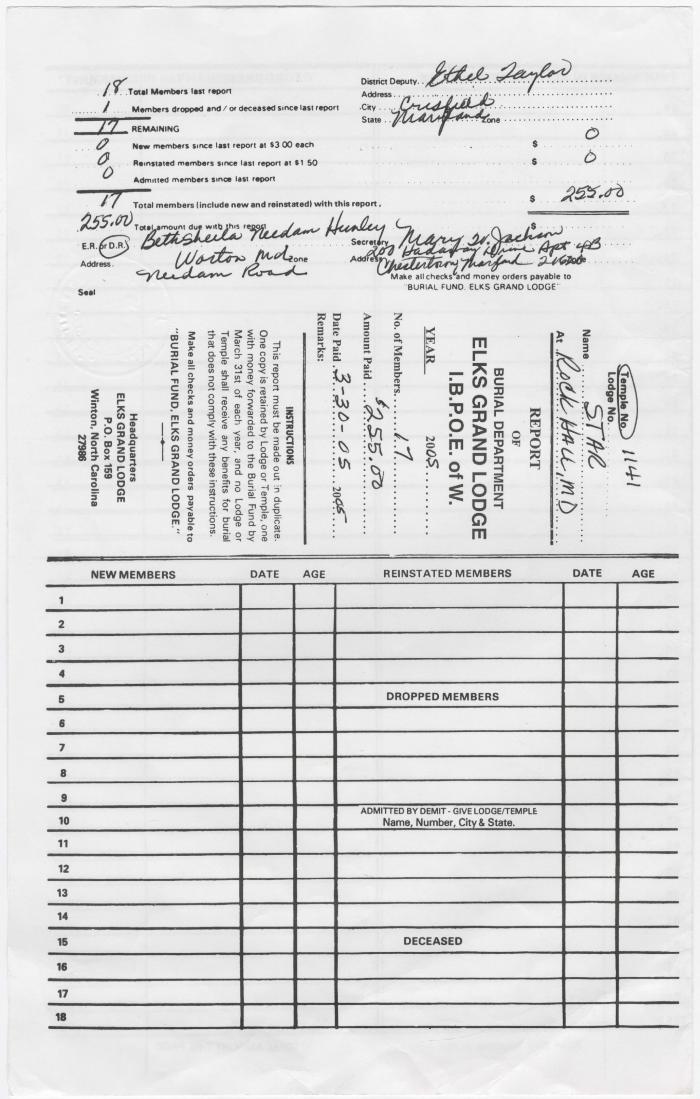 18 Total Members last report
1 Members dropped and / or deceased since last report
17 REMAINING
0 New members since last report at $3 00 each
0 Reinstated members since last report at $1 50
0 Admitted members since last report
17 Total members (include new and reinstated) with this report.
255.00 Total amount due with this report
E.R. or D.R. Bethsheila Needam Hunley
Address Worton Md zone
Needam Road
Seal
District Deputy. Ethel Taylor
Address
City Crisfield
State Maryland Zone
$ 0
$ 0
$ 255.00
$
Secretary Mary W. Jackson
Address 200 Hadaway Drive Apt
Chestertown
Make all checks and money orders payable to
"BURIAL FUND. ELKS GRAND LODGE"
Temple No.
Lodge No. 1141
Name STAR
At ROCK HALL, MD
REPORT
OF
BURIAL DEPARTMENT
ELKS GRAND LODGE
I.B.P.O.E. of W.
YEAR 2005
No. of Members 17
Amount Paid $255.00
Date Paid 3-30-05 2005
Remarks:
INSTRUCTIONS
This report must be made out in duplicate.
One copy is retained by Lodge or Temple, one
with money forwarded to the Burial Fund by
March 31st of each year, and no Lodge or
Temple shall receive any benefits for burial
that does not comply with these instructions.
Make all checks and money orders payable to
"BURIAL FUND, ELKS GRAND LODGE."
Headquarters
ELKS GRAND LODGE
P.O. Box 159
Winton, North Carolina
27986
NEW MEMBERS DATE AGE REINSTATED MEMBERS DATE AGE
1
2
3
4
5 DROPPED MEMBERS
6
7
8
9
ADMITTED BY DEMIT - GIVE LODGE/TEMPLE
10 Name, Number, City & State.
11
12
13
14
15 DECEASED
16
17
18